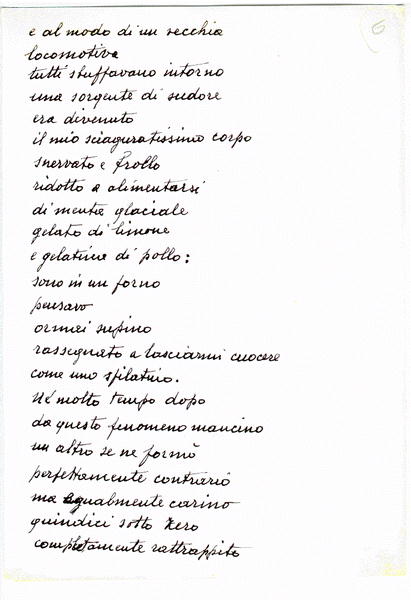 6
e al modo di un vecchia
locomotiva
tutti stuffavano intorno
una sorgente di sudore
era divenuto
il mio sciaguratissimo corpo
snervato e frollo
ridotto a alimentarsi
di menta glaciale
gelato di limone
e gelatina di pollo:
sono in un forno
pensavo
ormai supino
rassegnato a lasciarmi cuocere
come uno sfilatino.
Né molto tempo dopo
da questo fenomeno mancino
un altro se ne formò
perfettamente contrario
ma egualmente carino
quindici sotto zero
completamente rattrappito